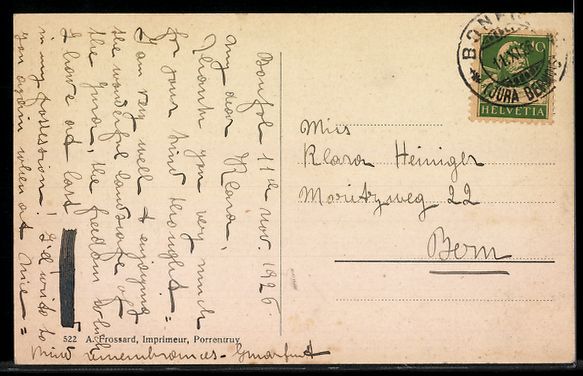 Bonfol 11th nov. 1926
My dear Klara,
Thank you very much
for your kind thought =
I am very well & enjoying
the wonderful landscape of
the Jura, the freedom which
I have at last
in my possession! I'd write to
you again when at Nice =
kind remembrances -
Miss
Klara Heiniger
Moritzweg 22
Bern
10
HELVETIA
BONFOL
(JURA BERNOIS)
522 A. Frossard, Imprimeur, Porrentruy